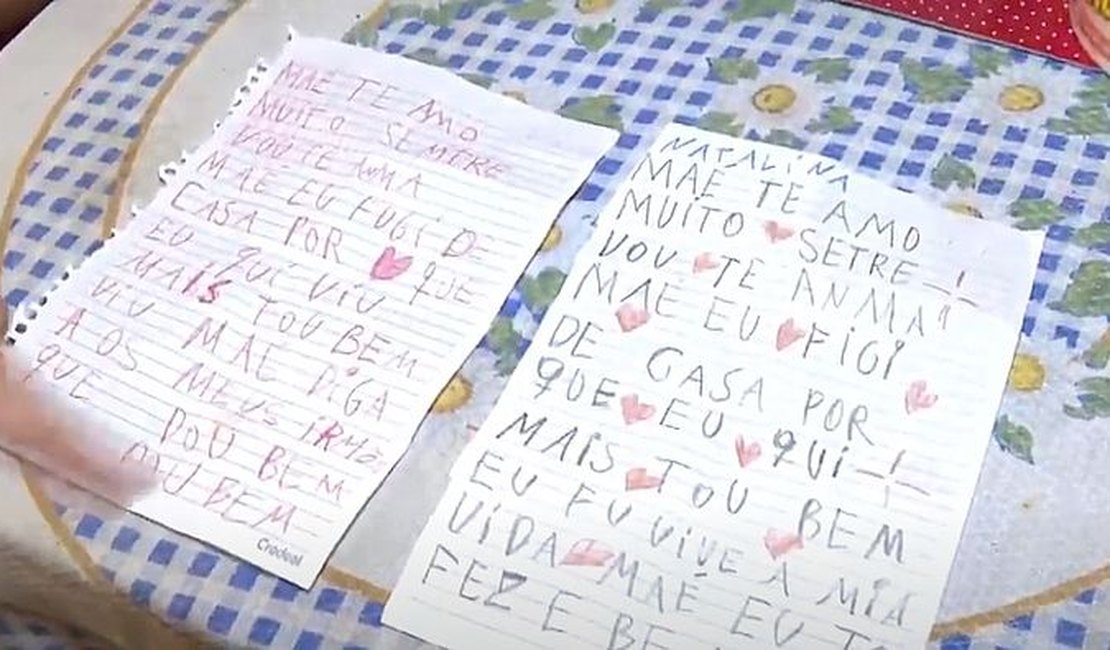 MÃE TE AMO
MUITO SEMTRE
VOU TE AMA
MAE EU FUGI DE
CASA POR QUE
EU QUI VIU
MAIS TOU BEM
VIU MAE DIGA
AOS MEUS IRMÃO
QUE POU BEM
BEM
Credeal
NATALINA
MÃE TE AMO
MUITO SETRE
VOU TE ANMA
MAE EU FIGI
DE CASA POR
QUE EU QUI
MAIS TOU BEM
EU FU VIVE A MIA
VIDA MAE EU
FELZ E BE